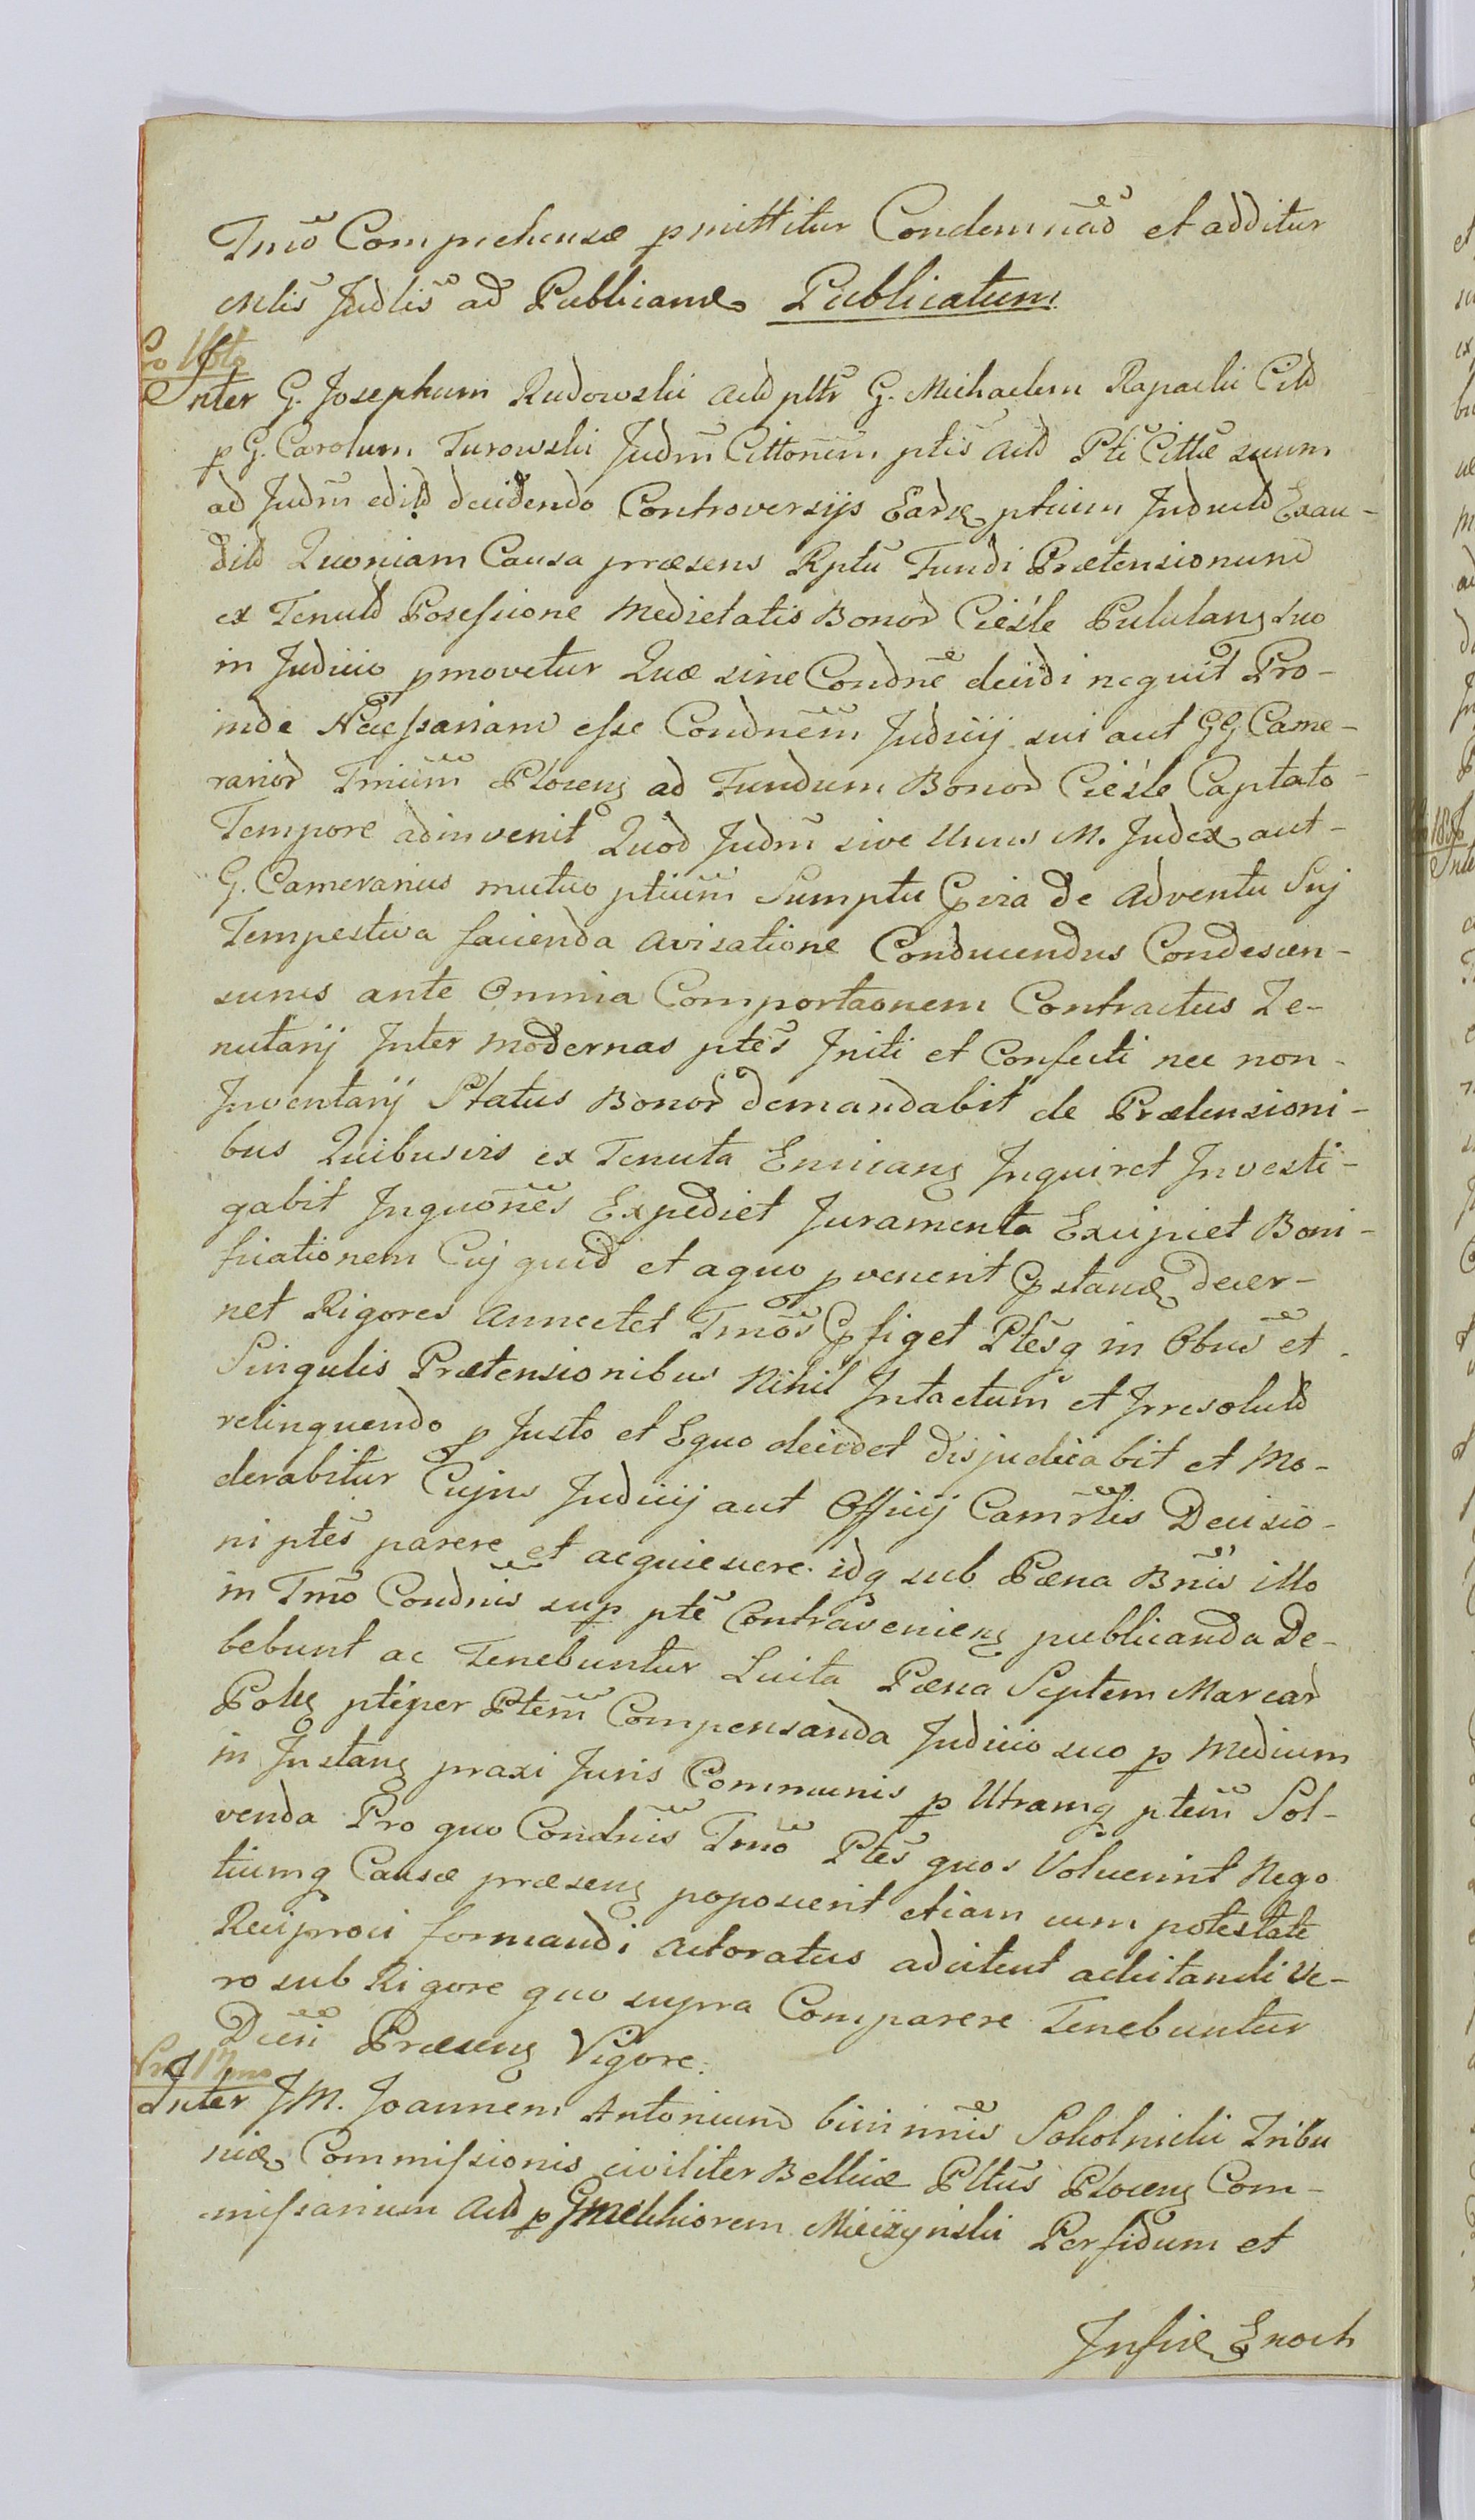 Tmõ Comprehensæ pmittitur Condemnãd et additur
Mlis Judlis ad Publicand Publicatum
Pro 16to
Inter G. Josephum Rudowski Actd pltr G. Michaelem Rapacki Citd
p G. Carolum Turowski Judm Cittonem ptis Actd Pti Cittæ suum
ad Judm editd decidendo Controversijs Eardq ptium Indructd Exau-
ditd Quoniam Causa præsens Rptu Fundi Prætensionum
ex Tenutd Posessione Medietatis Bonord Cieśle Pululans suo
in Judicio pmovetur Quæ sine Condne decidi nequit Pro-
inde Necessariam esse Condnem Judicij sui aut GG Came-
rariord Trium Plocens ad Fundum Bonord Cieśle Captato
Tempore adinvenit Quod Judm sive Unus M. Judex aut
G. Camerarius mutuo ptium Sumptu Gvia de Adventu Suj
Tempestiva facienda avisatione Conducendus Condescen-
surus ante Omnia Comportaonem Contractus Te-
nutarij Inter modernas ptes Initi et Confecti nec non
Inventarij Status Bonord demandabit de Prætensioni-
bus Quibusvis ex Tenuta Emicans Inquiret Investi-
gabit Inquones Expediet Juramenta Excipiet Boni-
ficationem Cuj quid et aquo pvenerit Gstand decer-
net Rigores Annectet Tmos Gfiget Ptesq in Obus et
Singulis Prætensionibus Nihil Intactum et Irresolutd
relinquendo p Justo et Equo decidet disjudicabit et Mo-
derabitur Cujus Judicij aut Officij Camrlis Decisio-
ni ptes parere et acquiescere idq sub Pæna Bnis illo
in Tmo Condnis sup pte Contraveniens publicanda De-
bebunt ac Tenebuntur Luita Pæna Septem Marcard
Pols ptiper Ptem Compensanda Judicio suo p Medium
in Instans praxi Juris Communis p Utramq ptem Sol-
venda Pro quo Condnis Tmo Ptes quos Voluerint Nego
tiumq Causæ præsens poposcerit etiam cum potestate
Reciproci formandi Actoratus adcitent adcitandi Ve-
ro sub Rigore quo supra Comparere Tenebuntur
Dcen Præsens Vigore.
Pro 17mo
Inter JM. Joannem Antonium binimis Sokolnicki Tribu
niæ Commissionis civiliter Bellicæ Pltus Plocens Com-
missarium Actd p G Melchiorem Miciżynski Perfidum et
Infid Enoch